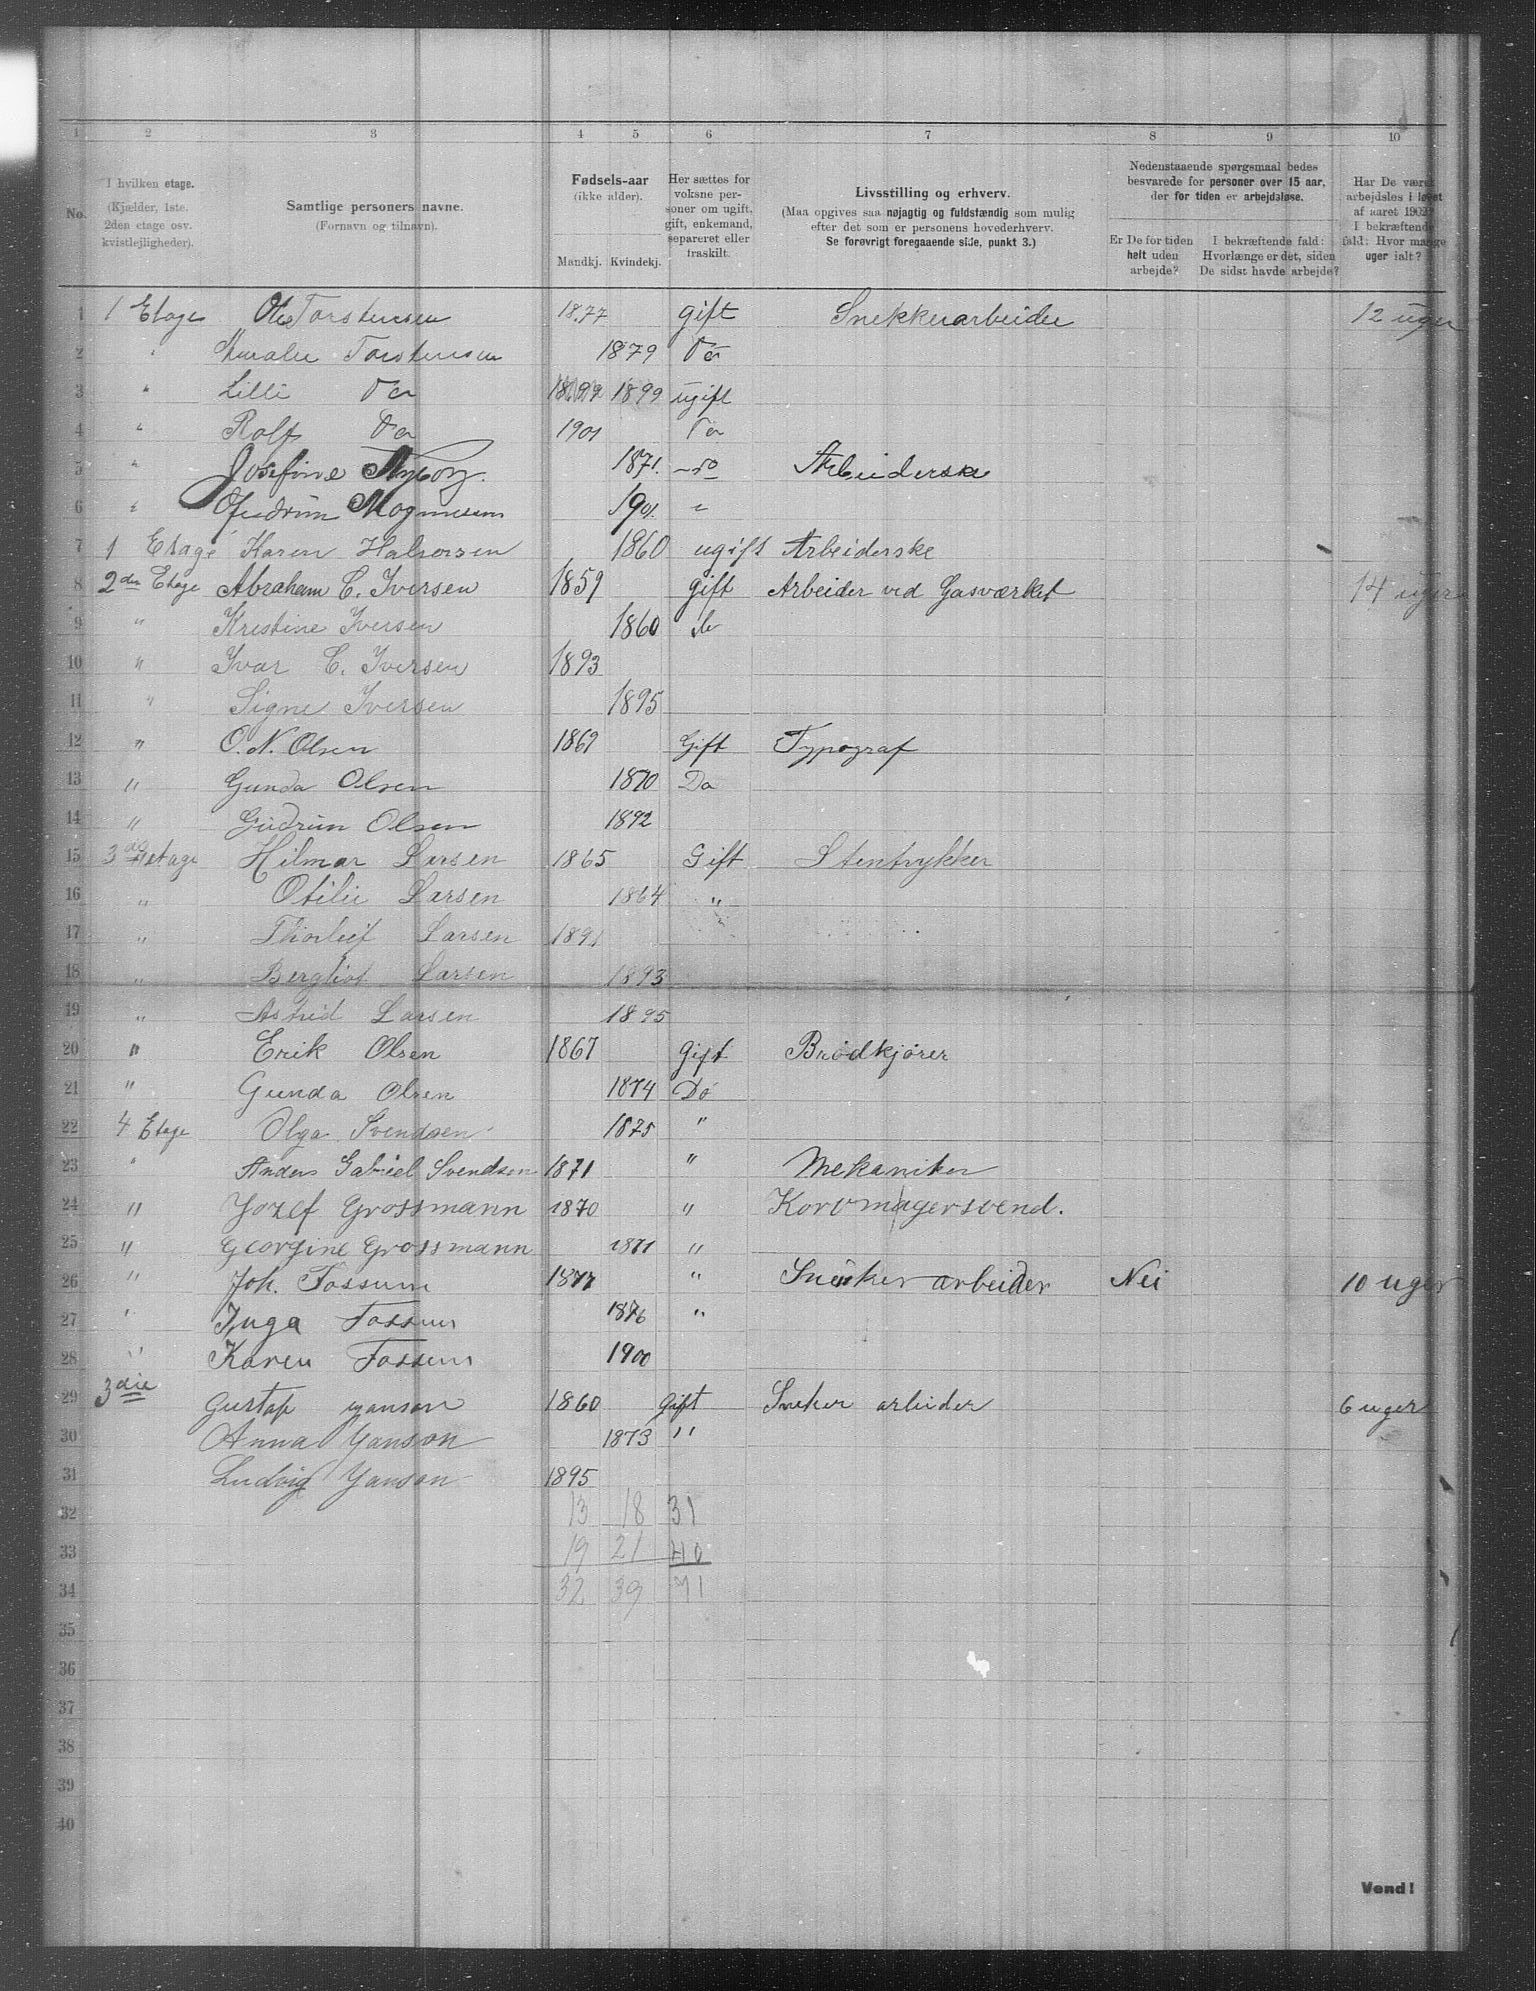 1 2 3 4 5 6 7 8 9 10
No.
I hvilken etage.
(Kjælder, 1ste.
2den etage osv.
kvistlejligheder).
Samtlige personers navne.
(Fornavn og tilnavn).
Fødsels-aar
(ikke alder).
Mandkj. Kvindekj.
Her sættes for
voksne per-
soner om ugift,
gift, enkemand,
separeret eller
fraskilt.
Livsstilling og erhverv.
(Maa opgives saa nøjagtig og fuldstændig som mulig
efter det som er personens hovederhverv.
Se forøvrigt foregaaende side, punkt 3.)
Nedenstaaende spørgsmaal bedes
besvarede for personer over 15 aar,
der for tiden er arbejdsløse.
Er De for tiden
helt uden
arbejde?
I bekræftende fald:
Hvorlænge er det, siden
De sidst havde arbejde?
Har De været
arbejdsløs i løbet
af aaret 1902?
I bekræftende
fald: Hvor mange
uger ialt?
1 1 Etage Ole Torstensen 1877 gift Snekkerarbeider 12 uger
2 " Torstensen 1879 Do
3 " Lilli Do 1899 ugift
4 " Rolf Do 1901 Do
5 " Josefine 1871. do Arbeiderske
6 " Gudrun Magnussen 1901. "
7 1 Etage Karen Halvorsen 1860 ugift Arbeiderske
8 2den Etage Abraham C. Iversen 1859 gift Arbeider ved Gasværket 14 uger
9 " Kristine Iversen 1860 do
10 " Ivar C. Iversen 1893
11 " Signe Iversen 1895
12 " O. N. Olsen 1869 Gift Typograf
13 " Gunda Olsen 1870 Do
14 " Gudrun Olsen 1892
15 3die etage Hilmar Larsen 1865 Gift Stentrykker
16 " Otilie Larsen 1864 "
17 " Thorleif Larsen 1891
18 " Bergliot Larsen 1893
19 " Astrid Larsen 1895
20 " Erik Olsen 1867 Gift Brødkjører
21 " Gunda Olsen 1874 Do
22 4 Etage Olga Svendsen 1875 "
23 " Anders Gabriel Svendsen 1871 " Mekaniker
24 " Jozef Grossmann 1870 " Korvmagersvend.
25 " Georgine Grossmann 1871 "
26 " Joh. Fossum 1877 " Sneker arbeider Nei 10 uger
27 " Inga Fossum 1876 "
28 " Karen Fossum 1900
29 3die Gustaf Yanson 1860 Gift Sneker arbeider 6 uger
30 Anna Yanson 1873 "
31 Ludvig Yanson 1895
32 13 18 31
33 19 21 40
34 32 39 71
35
36
37
38
39
40
Vend!